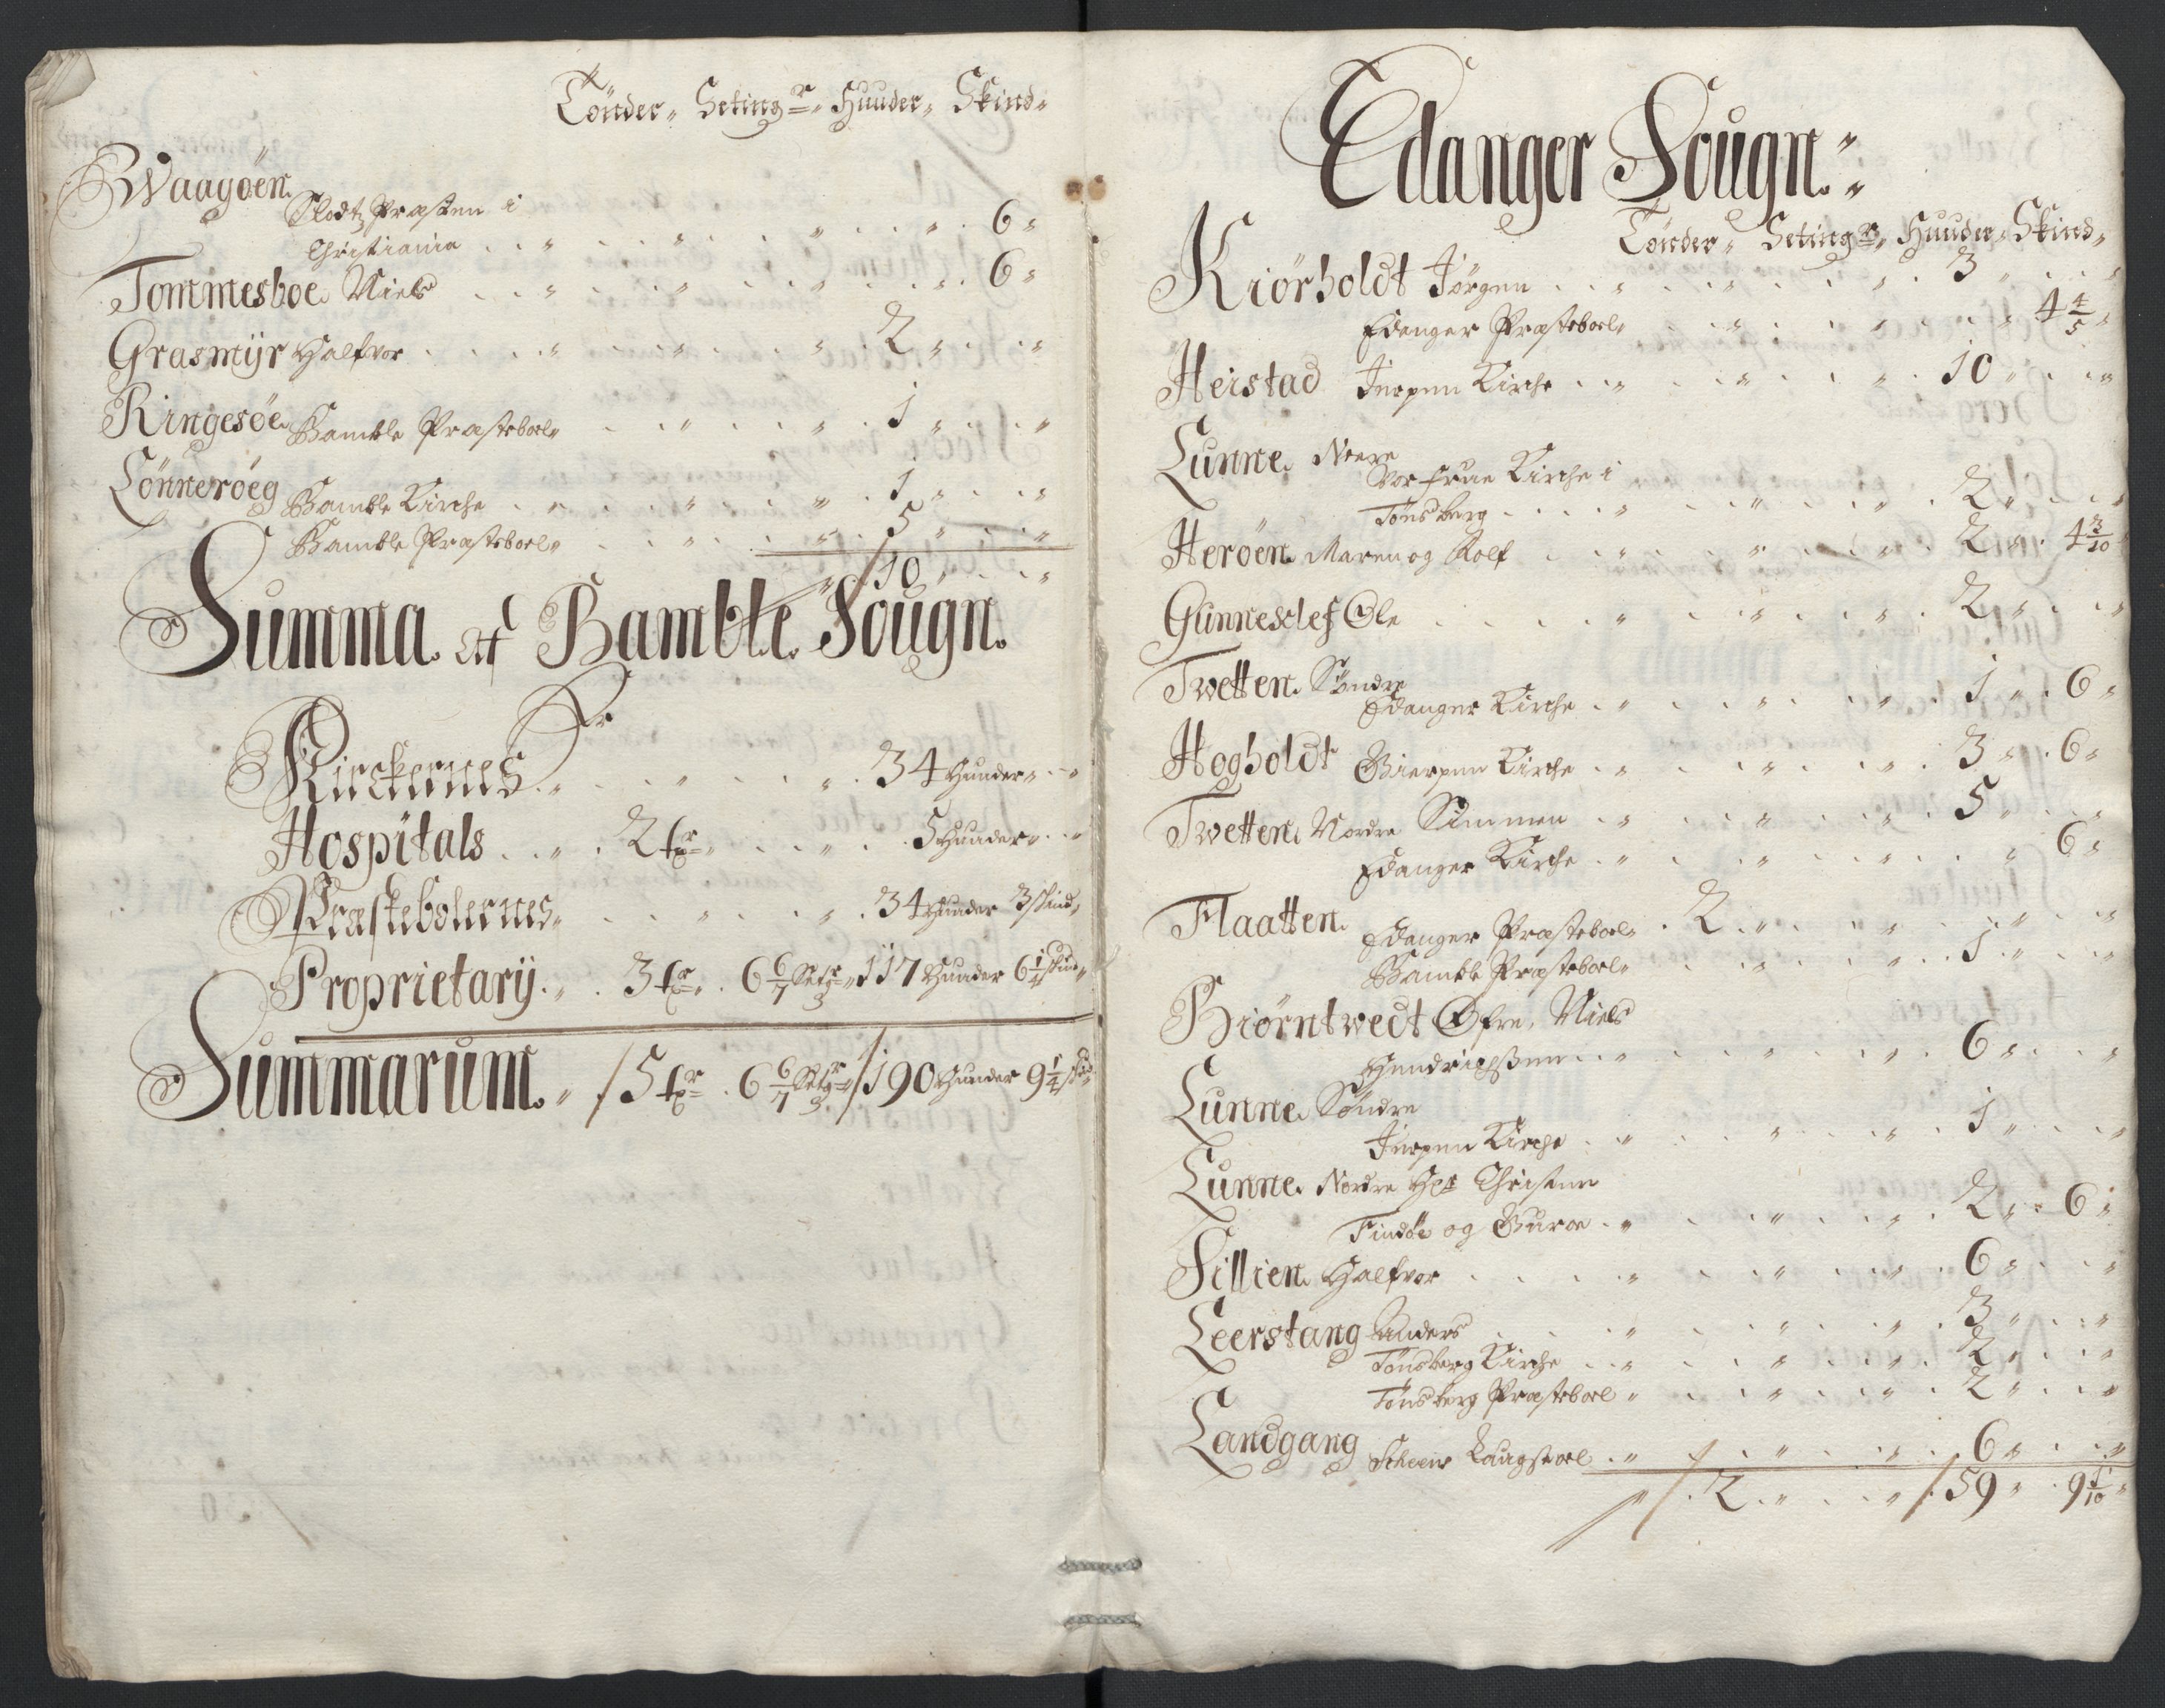 Tønder„ Seting r„ Huuder„ Skind„
Waagøen.
Slodtz Præsten i
Christiania . . „ . . „ . . „ . . „ . 6„
Tommesboe. Niels . . „ . . „ . . „ . . „ . 6„
Grasmÿr Halfvor . . . „ . . „ . . „ . 2 „ . . „
Ringesøe. Bamble Præsteboel„ . . „ . . „ . 1 „ . . „
Lønnerøeg Bamble Kirche . . „ . . „ . . „ . 1 „ . . „
Bamble Præsteboel„ . . „ . . „ . 5 „ . . „
„ 10 „ . . „
Summa. Af Bamble. Sougn.
Kirckernes . „ . . „ . . „ . 34 Huuder„ . . „
Hospitals . . „ . 2 tr„ . . „ . . 5 Huuder„ . . „
Præstebolernes„ . . „ . . „ . 34 Huuder 3 skind„
Proprietarÿ . „ . 3 tr„ . 6 6/7 Setr„ 117 Huuder 6 1/4 skind„
Summarum. „ . 5 tr . 6 6/7 Setgr„ 190 Huuder 9 1/4 skind
Edanger Sougn.„
Tønder„ Seting r„ Huuder„ Skind„
Kiørholdt Jørgen . . „ . . „ . . „ . 3 „ . . „
Edanger Præsteboel„ . . „ . . „ . . „ 4 4/5 „
Heistad Jerpen Kirche . . „ . . „ . . „ . 10 „ . . „
Lunne. Neere
Vor Frue Kirche i
Tønsberg . . . . „ . . „ . . „ . 2 „ . . „
Herøen. Maren og Rolf . . „ . . „ . . „ . 2 „ . 4 3/10
Gunnesclef Ole . . . . „ . . „ . . „ . 2 „ . . „
Twetten. Søndre
Edanger Kirche . „ . . „ . . „ . 1 „ . 6 „
Hogholdt Gierpen Kirche . „ . . „ . . „ . 3 „ . 6 „
Twetten. Nordre Simmen . „ . . „ . . „ . 5 „ . . „
Edanger Kirche . „ . . „ . . „ . . „ 6 „
Flaatten.
Edanger Præsteboel„ . 2 . „ . . „ . . „ . . „
Bamble Præsteboel„ . . „ . . „ . 1 „ . . „
Biørntwedt Øfre. Niels
Hendrichssen . . „ . . „ . . „ . 6 „ . . „
Lunne. Søndre
Jerpen Kirche . . „ . . „ . . „ . 1 „ . . „
Lunne. Nordre Hr Christen
Findøe og Guroe . „ . . „ . . „ . 2 „ . 6 „
Fillien. Halfvor . . . . „ . . „ . . „ . 6 „ . . „
Leerstang Anders . . . „ . . „ . . „ . 3 „ . . „
Tønsberg Kirche . . „ . . „ . . „ . 2 „ . . „
Tønsberg Præsteboel „ . . „ . . „ . 2 „ . . „
Landgang Scheens Laugstoel . „ . . „ . . „ . 6 „ . . „
„ . 2 . „ . . „ . 59 „ . 9 1/10 „